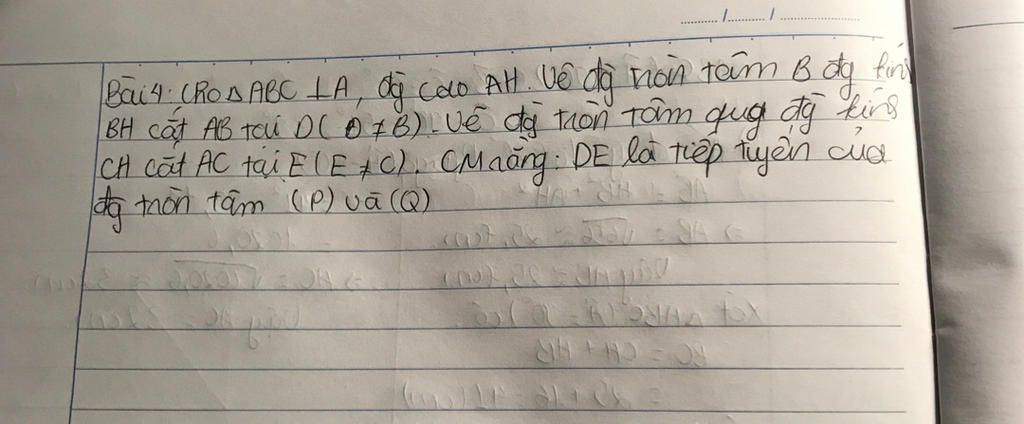 Bài 4: CRo △ ABC ⊥ A, đg cao AH. Vẽ đg tròn tâm B đg kính
BH cắt AB tại D (D ≠ B). Vẽ đg tròn tâm qug đg kính
CH cắt AC tại E (E ≠ C). CM rằng: DE là tiếp tuyến của
đg tròn tâm (P) và (Q)